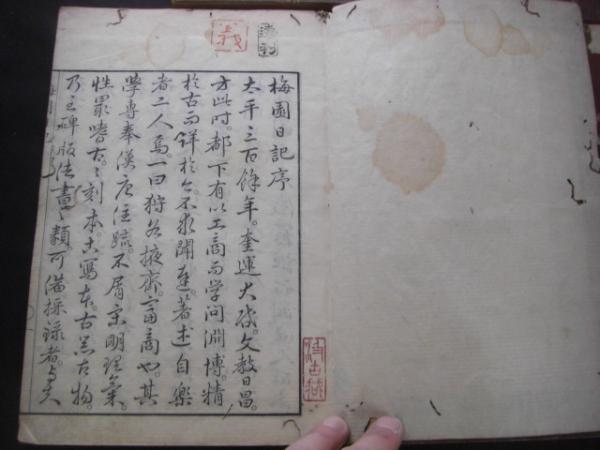 梅園日記序
太平三百餘年。奎運大啓。文教日昌。
方此时。都下有以工商而学问渊博。精
於古而詳於今。不求聞達。著述自樂
者二人焉。一曰狩谷掖齋。富商也。其
學專奉漢唐注疏。不屑宋明理氣。
性最嗜古。古刻本。古寫本。古器古物。
乃至碑版法書之類可備採録者。